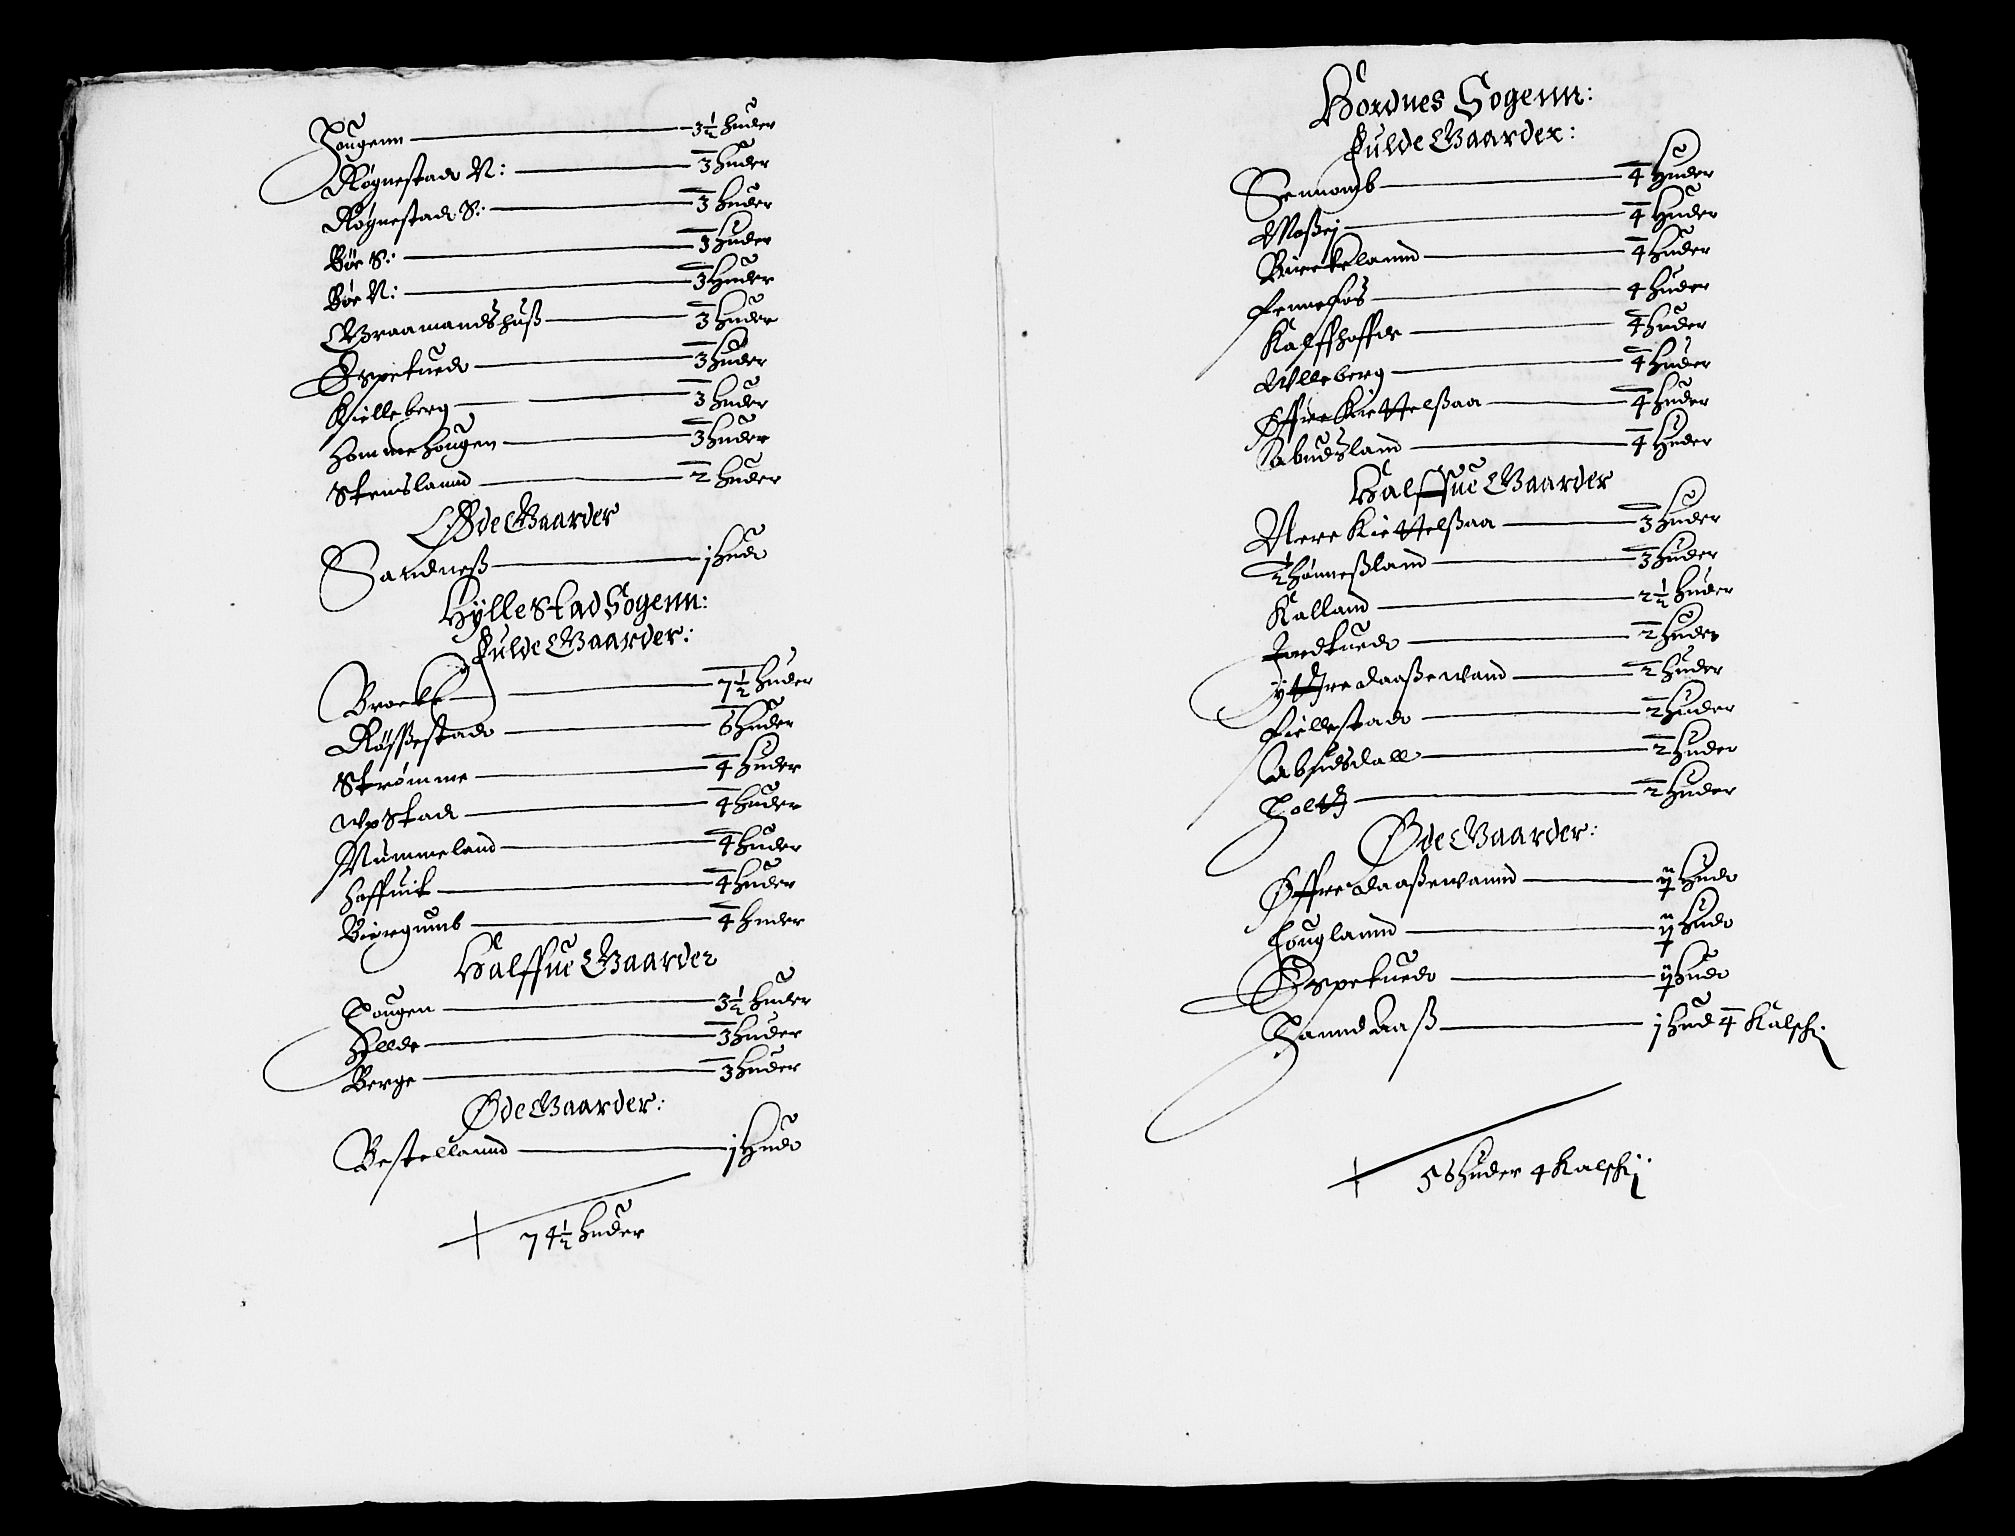 Hougenn — 3½ huder
Røgnestad N: — 3 huder
Røgnestad S: — 3 huder
Bøe S: — 3 huder
Bøe N: — 3 huder
Graamandshuß — 3 huder
Espetued — 3 huder
Kielleberg — 3 huder
Hommehougen — 3 huder
Stenslannd — 2 huder
Øde Gaarder
Sandneß — j hud
Hyllestad Sogenn:
Fulde Gaarder:
Brocke — 7½ huder
Røsßestad — 6 huder
Strømme — 4 huder
Wpstad — 4 huder
Nummeland — 4 huder
Haffuik — 4 huder
Biørgumb — 4 huder
Halffue Gaarder
Hougen — 3½ huder
Hellde — 3 huder
Berge — 3 huder
Øde Gaarder:
Bestelannd — j hud
74½ huder
Hordnes Sogenn:
Fulde Gaarder:
Sennomb — 4 huder
Moßej — 4 huder
Birckelannd — 4 huder
Fennefos — 4 huder
Kalffhoffde — 4 huder
Wlleberg — 4 huder
Øffre Kiettelßaa — 4 huder
Abudsland — 4 huder
Halffue Gaarder
Nere Kiettelßaa — 3 huder
½ Hønneßland — 3 huder
Kalland — 2½ huder
Jordtued — 2 huder
ÿttre daaßewand — 2 huder
Fiellestad — 2 huder
Abudsdall — 2 huder
Holtt — 2 huder
Øde Gaarder:
Øffre daaßewannd — ÿ hud
Houglannd — ÿ hud
Espetued — ÿ hud
Hannd aaß — j hud 4 Kalsch:
56 huder 4 Kalsch: